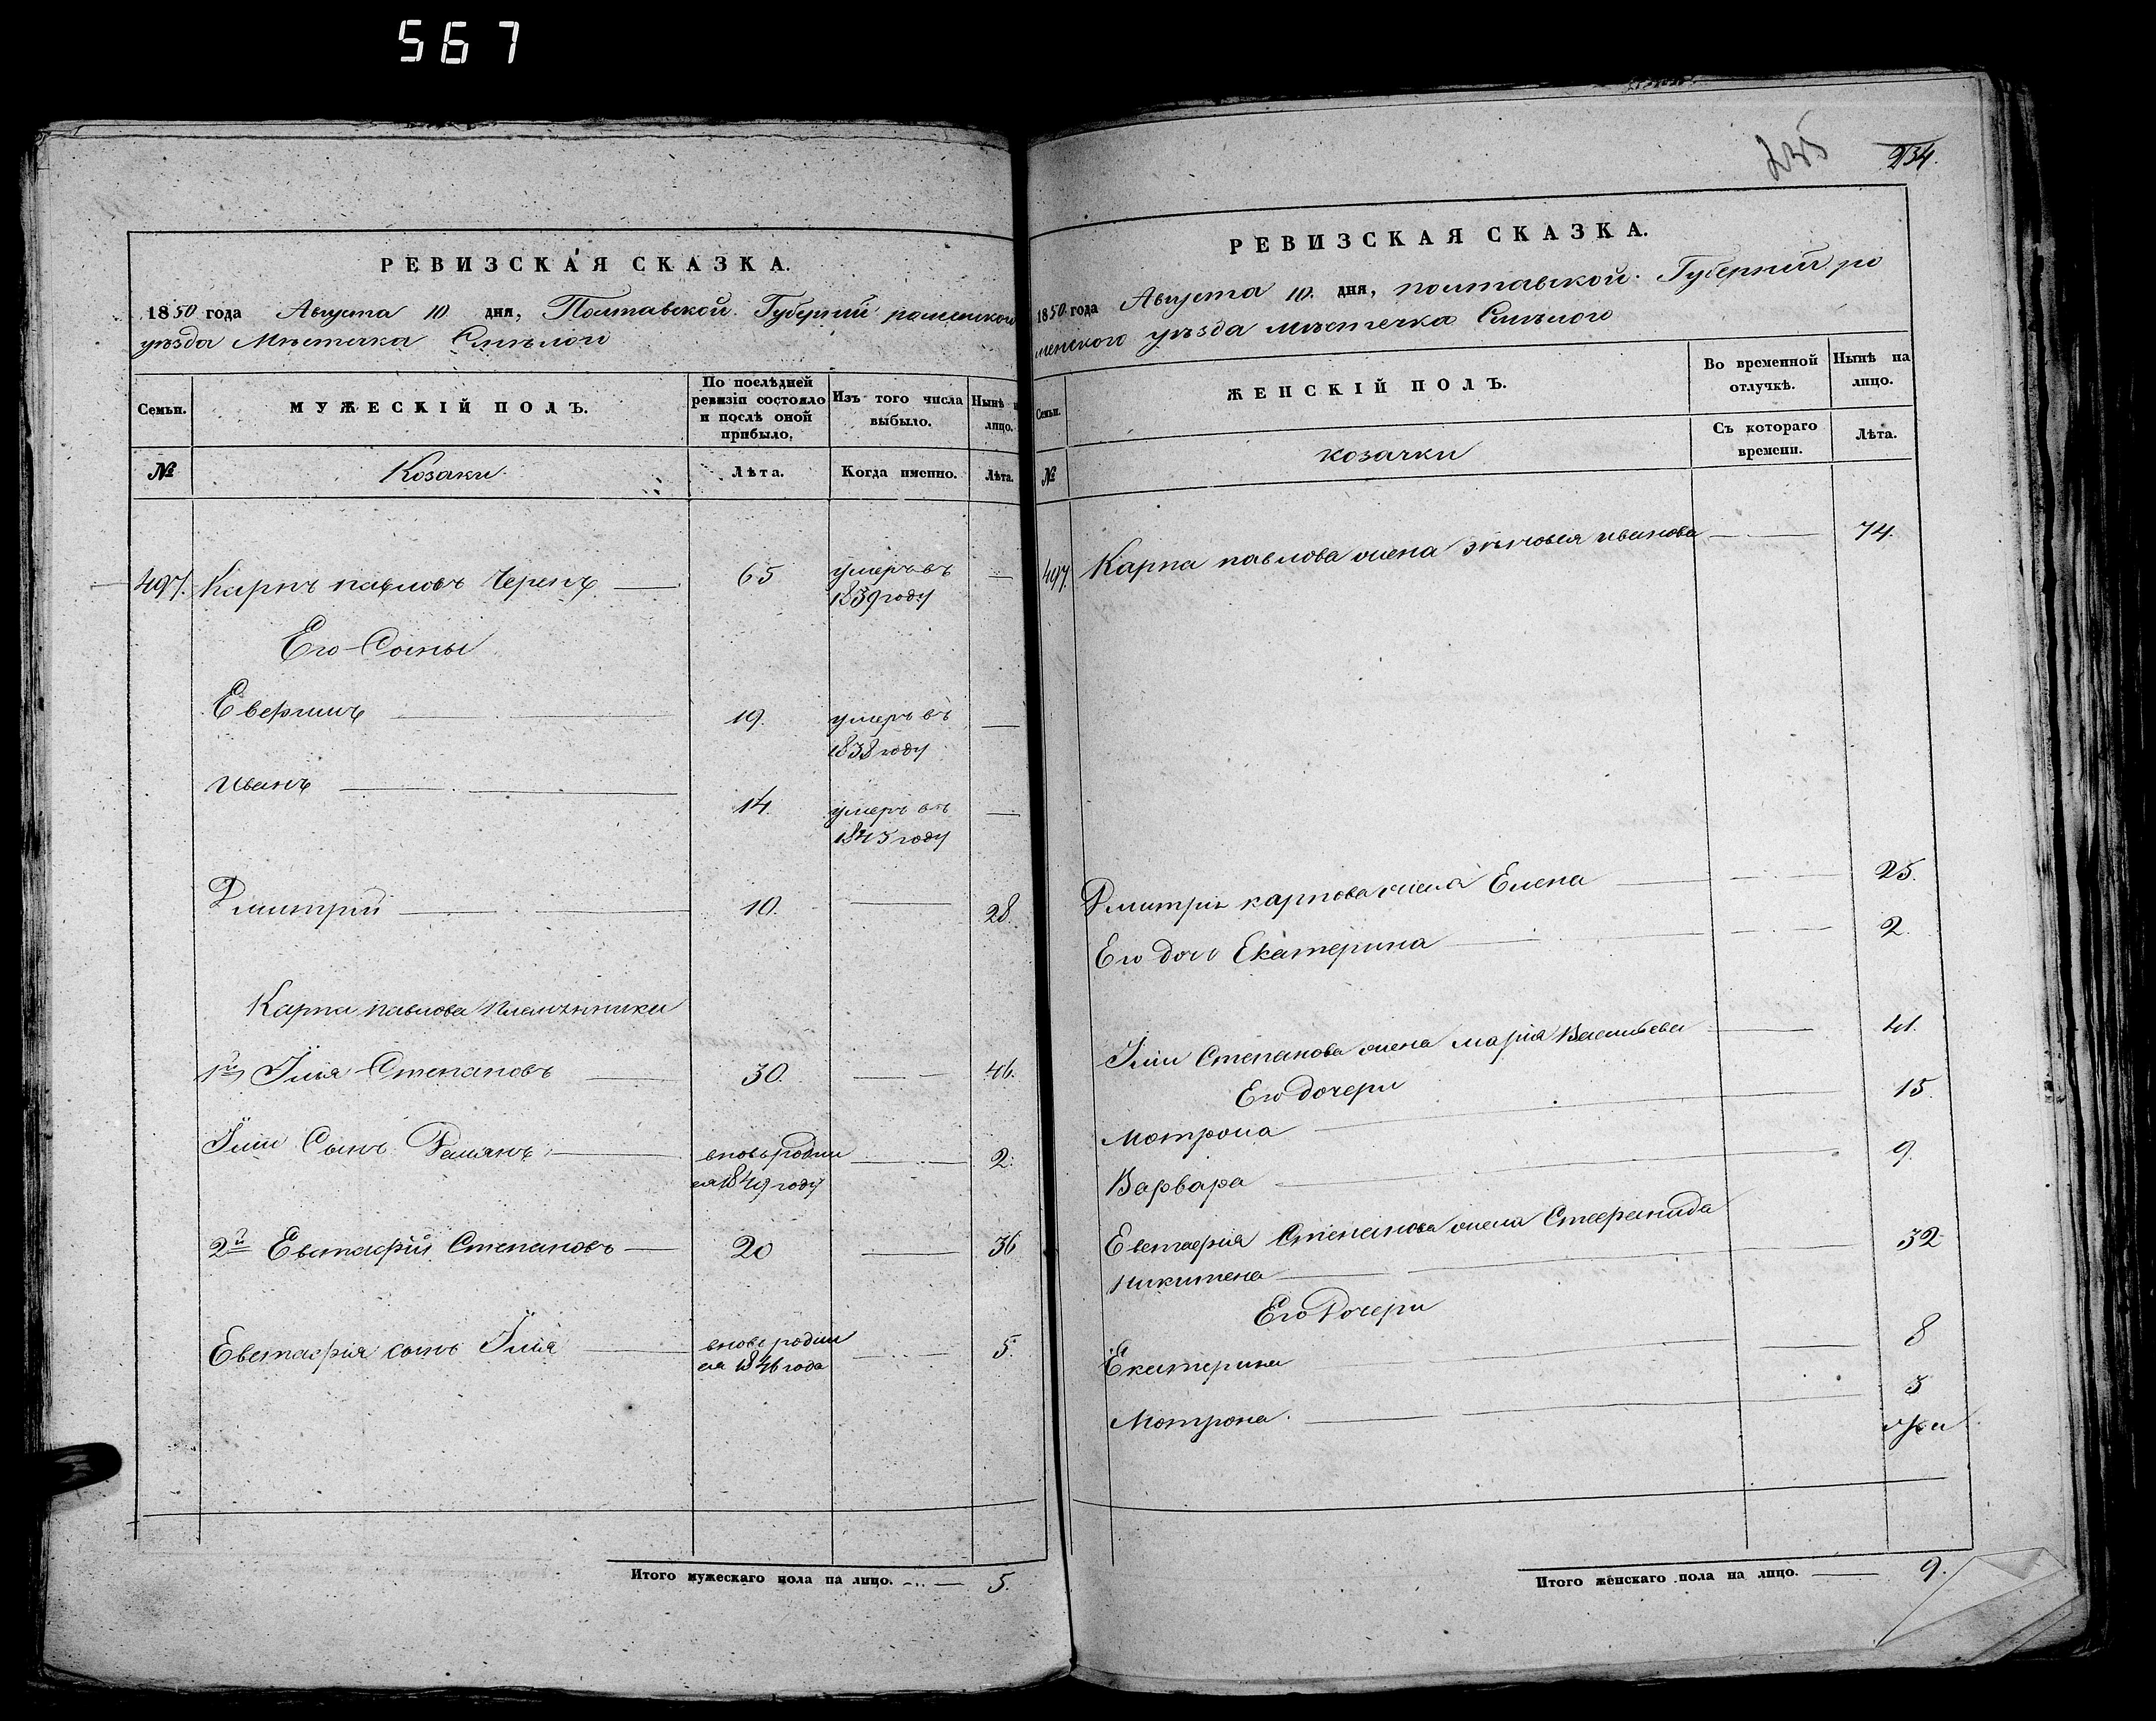 567
РЕВИЗСКАЯ СКАЗКА.
1850 года Августа 10 дня, Полтавской Губерніи роменского
уѣзда Мѣстечка Смѣлого
Семьи.
МУЖЕСКІЙ ПОЛЪ.
По послѣдней ревизіи состояло и послѣ оной прибыло.
Изъ того числа выбыло.
Нынѣ на лицо.
№
Козаки.
Лѣта.
Когда именно.
Лѣта.
497. Карпъ павловъ Черепъ — 65 умеръ въ —
1839 году
Его Сыны
Евфимъ — 19. умеръ въ —
1838 году
Иванъ — 14. умеръ въ —
1843 году
Дмитрій — 10. — 28.
Карпа павлова племянники
1й Илія Степановъ — 30. — 46.
Иліи Сынъ Демянъ — вновь родил — 2.
ся 1849 году
2й Евстафій Степановъ — 20 — 36
Евстафія сынъ Илія — вновь родил — 5.
ся 1846 года
Итого мужескаго пола на лицо. — 5.
245
234.
РЕВИЗСКАЯ СКАЗКА.
1850 года Августа 10. дня, полтавской Губерніи ро
менского уѣзда мѣстечка Смѣлого
Семьи.
ЖЕНСКІЙ ПОЛЪ.
Во временной отлучкѣ.
Нынѣ на лицо.
№
козачки
Съ котораго времени.
Лѣта.
497. Карпа павлова жена иванова — 74.
Дмитрія карпова жена Елена — 25.
Его дочь Екатерина — 2.
Иліи Степанова жена марія Васильева — 41.
Его дочери
Мотрона — 15.
Варвара — 9.
Евстафія Степанова жена Стефанида
Никитена — 32
Его Дочери
Екатерина — 8
Мотрона. — 3
три
Итого женскаго пола на лицо. — 9.